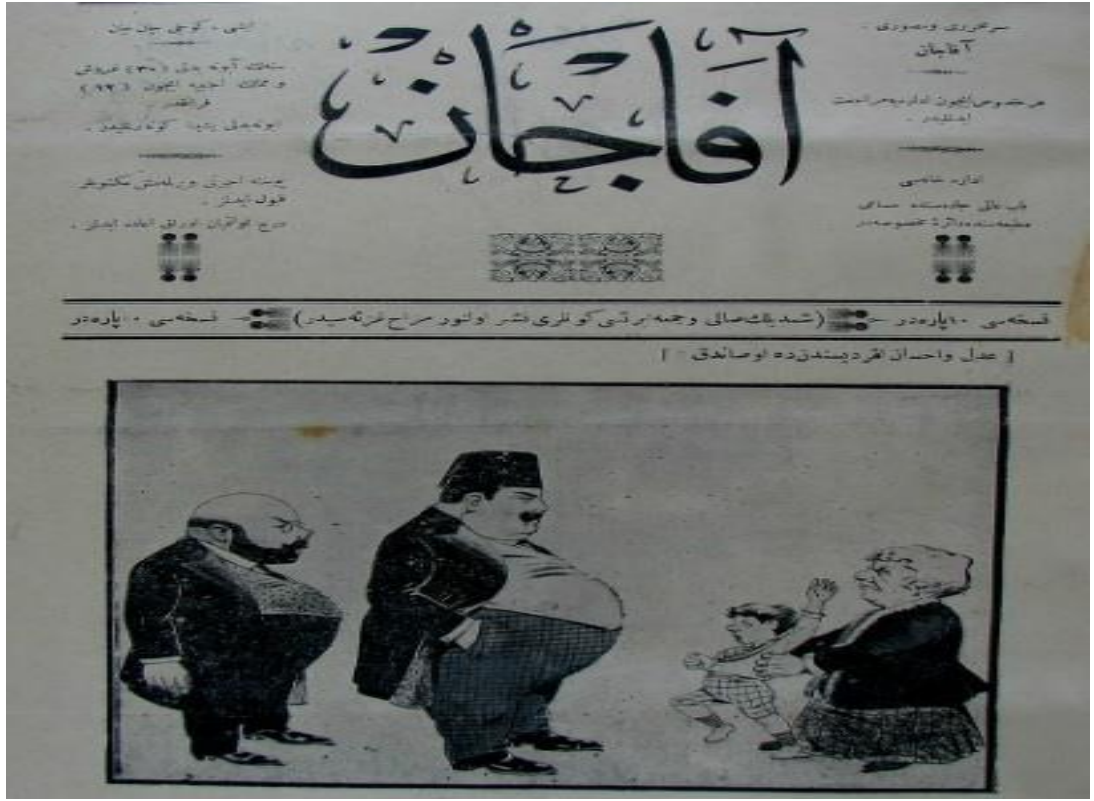 آفاجان
سرمحرری و مصوری :
آفاجان
هر خصوص ایچون اداره‌یه مراجعت
ایدلیدر .
اداره خانه‌سی
باب عالی جاده‌سنده مساعی
مطبعه‌سنده دائرهٔ مخصوصه‌در
سنه‌لك آبونه بدلی (۳۰) غروش
و ممالك اجنبیه ایچون
فرانقدر .
پوسته اجرتی ویرلمه‌مش مكتوبلر
قبول ایدلمز .
درج اولنمیان اوراق اعاده ایدلمز .
نسخه‌سی ۱۰ پاره‌در (شمدیلك صالی و جمعه ایرتسی كونلری نشر اولنور مزاح غزته‌سیدر) نسخه‌سی ۱۰ پاره‌در
[ عدل و احسان ده اوصاندق : ]